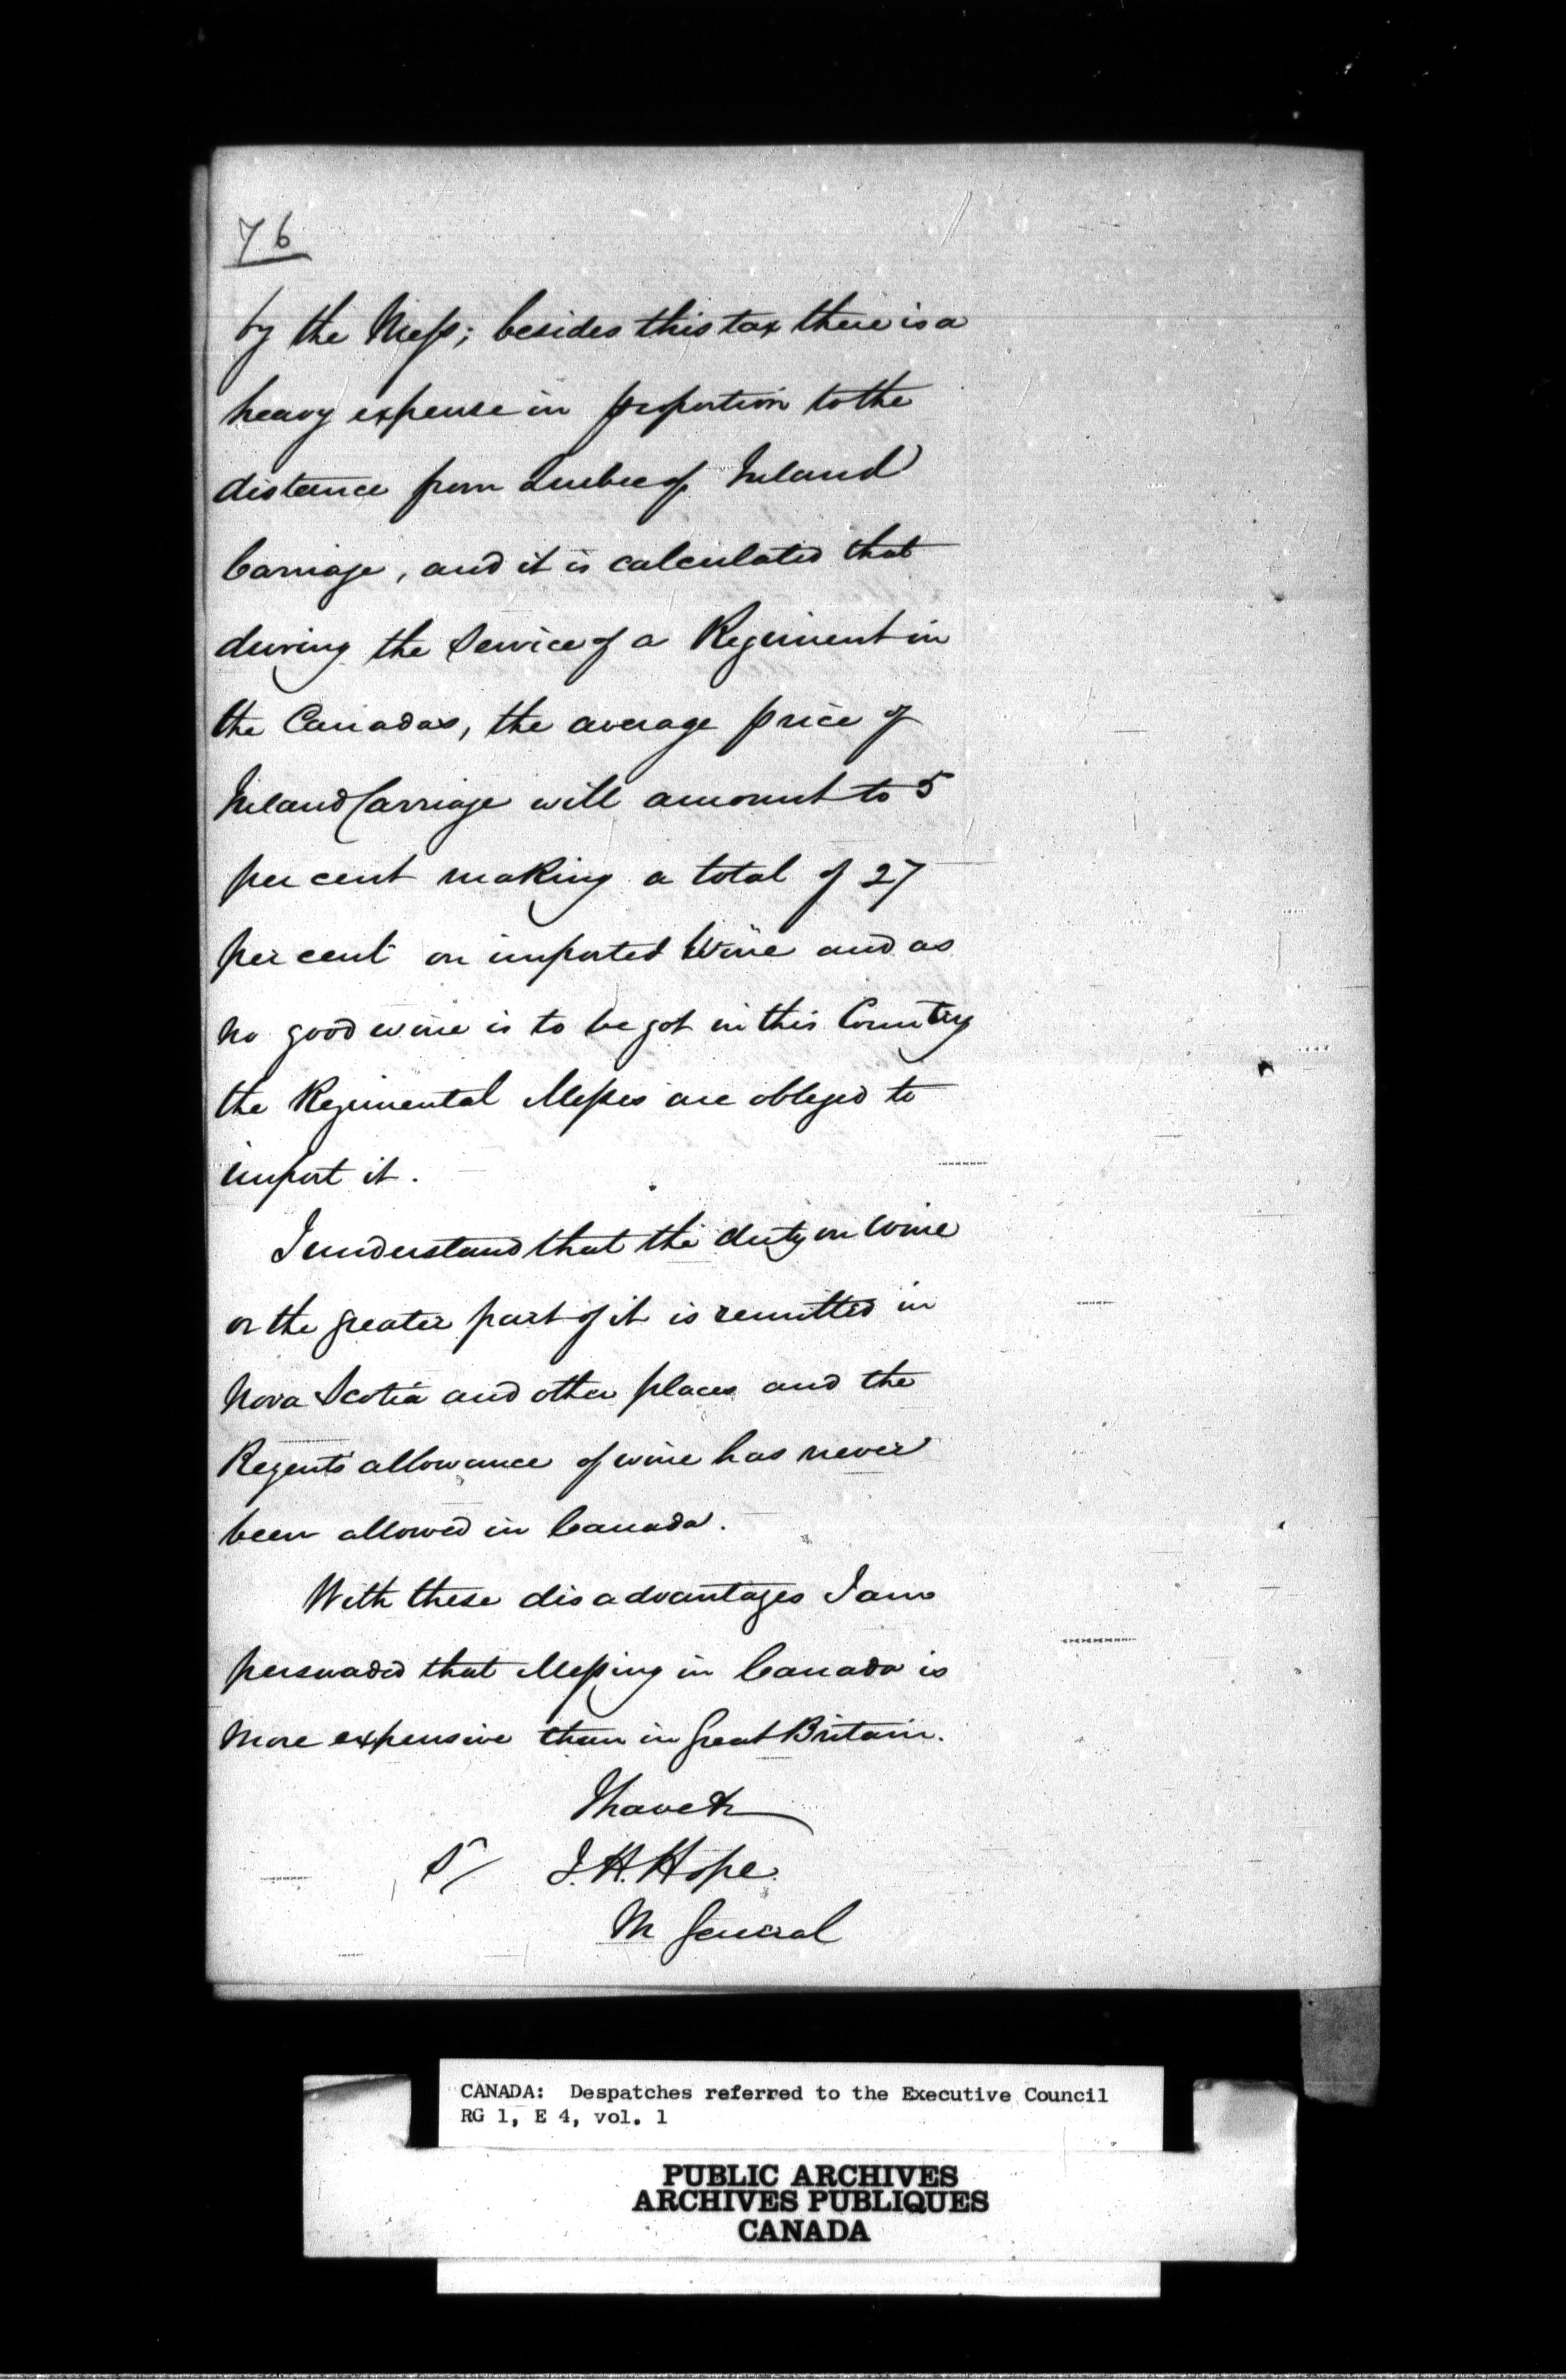 76
by the Mess; besides this tax there is a
heavy expense in proportion to the
distance from Quebec of Inland
Carriage, and it is calculated that
during the Service of a Regiment in
the Canadas, the average price of
Inland Carriage will amount to 5
per cent making a total of 27
per cent on imported Wine and as
no good wine is to be got in this Country
the Regimental Messes are obliged to
import it.
I understand that the duty on Wine
or the greater part of it is remitted in
Nova Scotia and other places and the
Regents allowance of wine has never
been allowed in Canada.
With these disadvantages I am
persuaded that Messing in Canada is
more expensive than in Great Britain.
I have &c
S/ J. H. Hope.
M General
CANADA: Despatches referred to the Executive Council
RG 1, E 4, vol. 1
PUBLIC ARCHIVES
ARCHIVES PUBLIQUES
CANADA